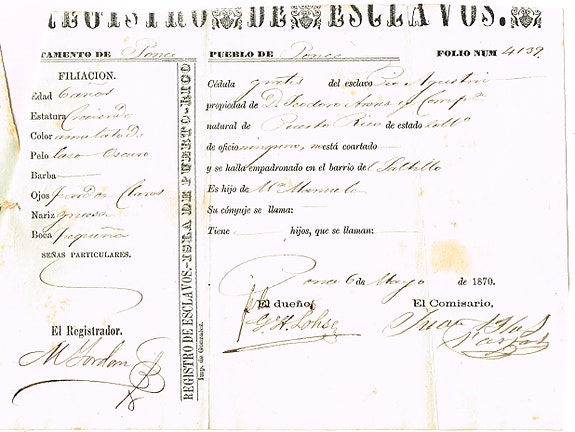 REGISTRO DE ESCLAVOS.
TAMENTO DE Ponce PUEBLO DE Ponce FOLIO NUM 4139.
FILIACION.
Edad 6 años
Estatura Creciendo
Color amulatado
Pelo laso Oscuro
Barba
Ojos pardos Claros
Nariz gruesa
Boca pequeña
SEÑAS PARTICULARES.
El Registrador.
REGISTRO DE ESCLAVOS.-ISLA DE PUERTO-RICO
Imp. de Gonzalez.
Cédula gratis del esclavo Pio Agustin
propiedad de D. Teodoro y Compª
natural de Puerto Rico de estado
de oficio ninguno, no está coartado
y se halla empadronado en el barrio del Saltillo
Es hijo de Mª Manuela
Su cónyuje se llama:
Tiene hijos, que se llaman:
Ponce 6 de Mayo de 1870.
El dueño, El Comisario,
G. H. Lohse Juan